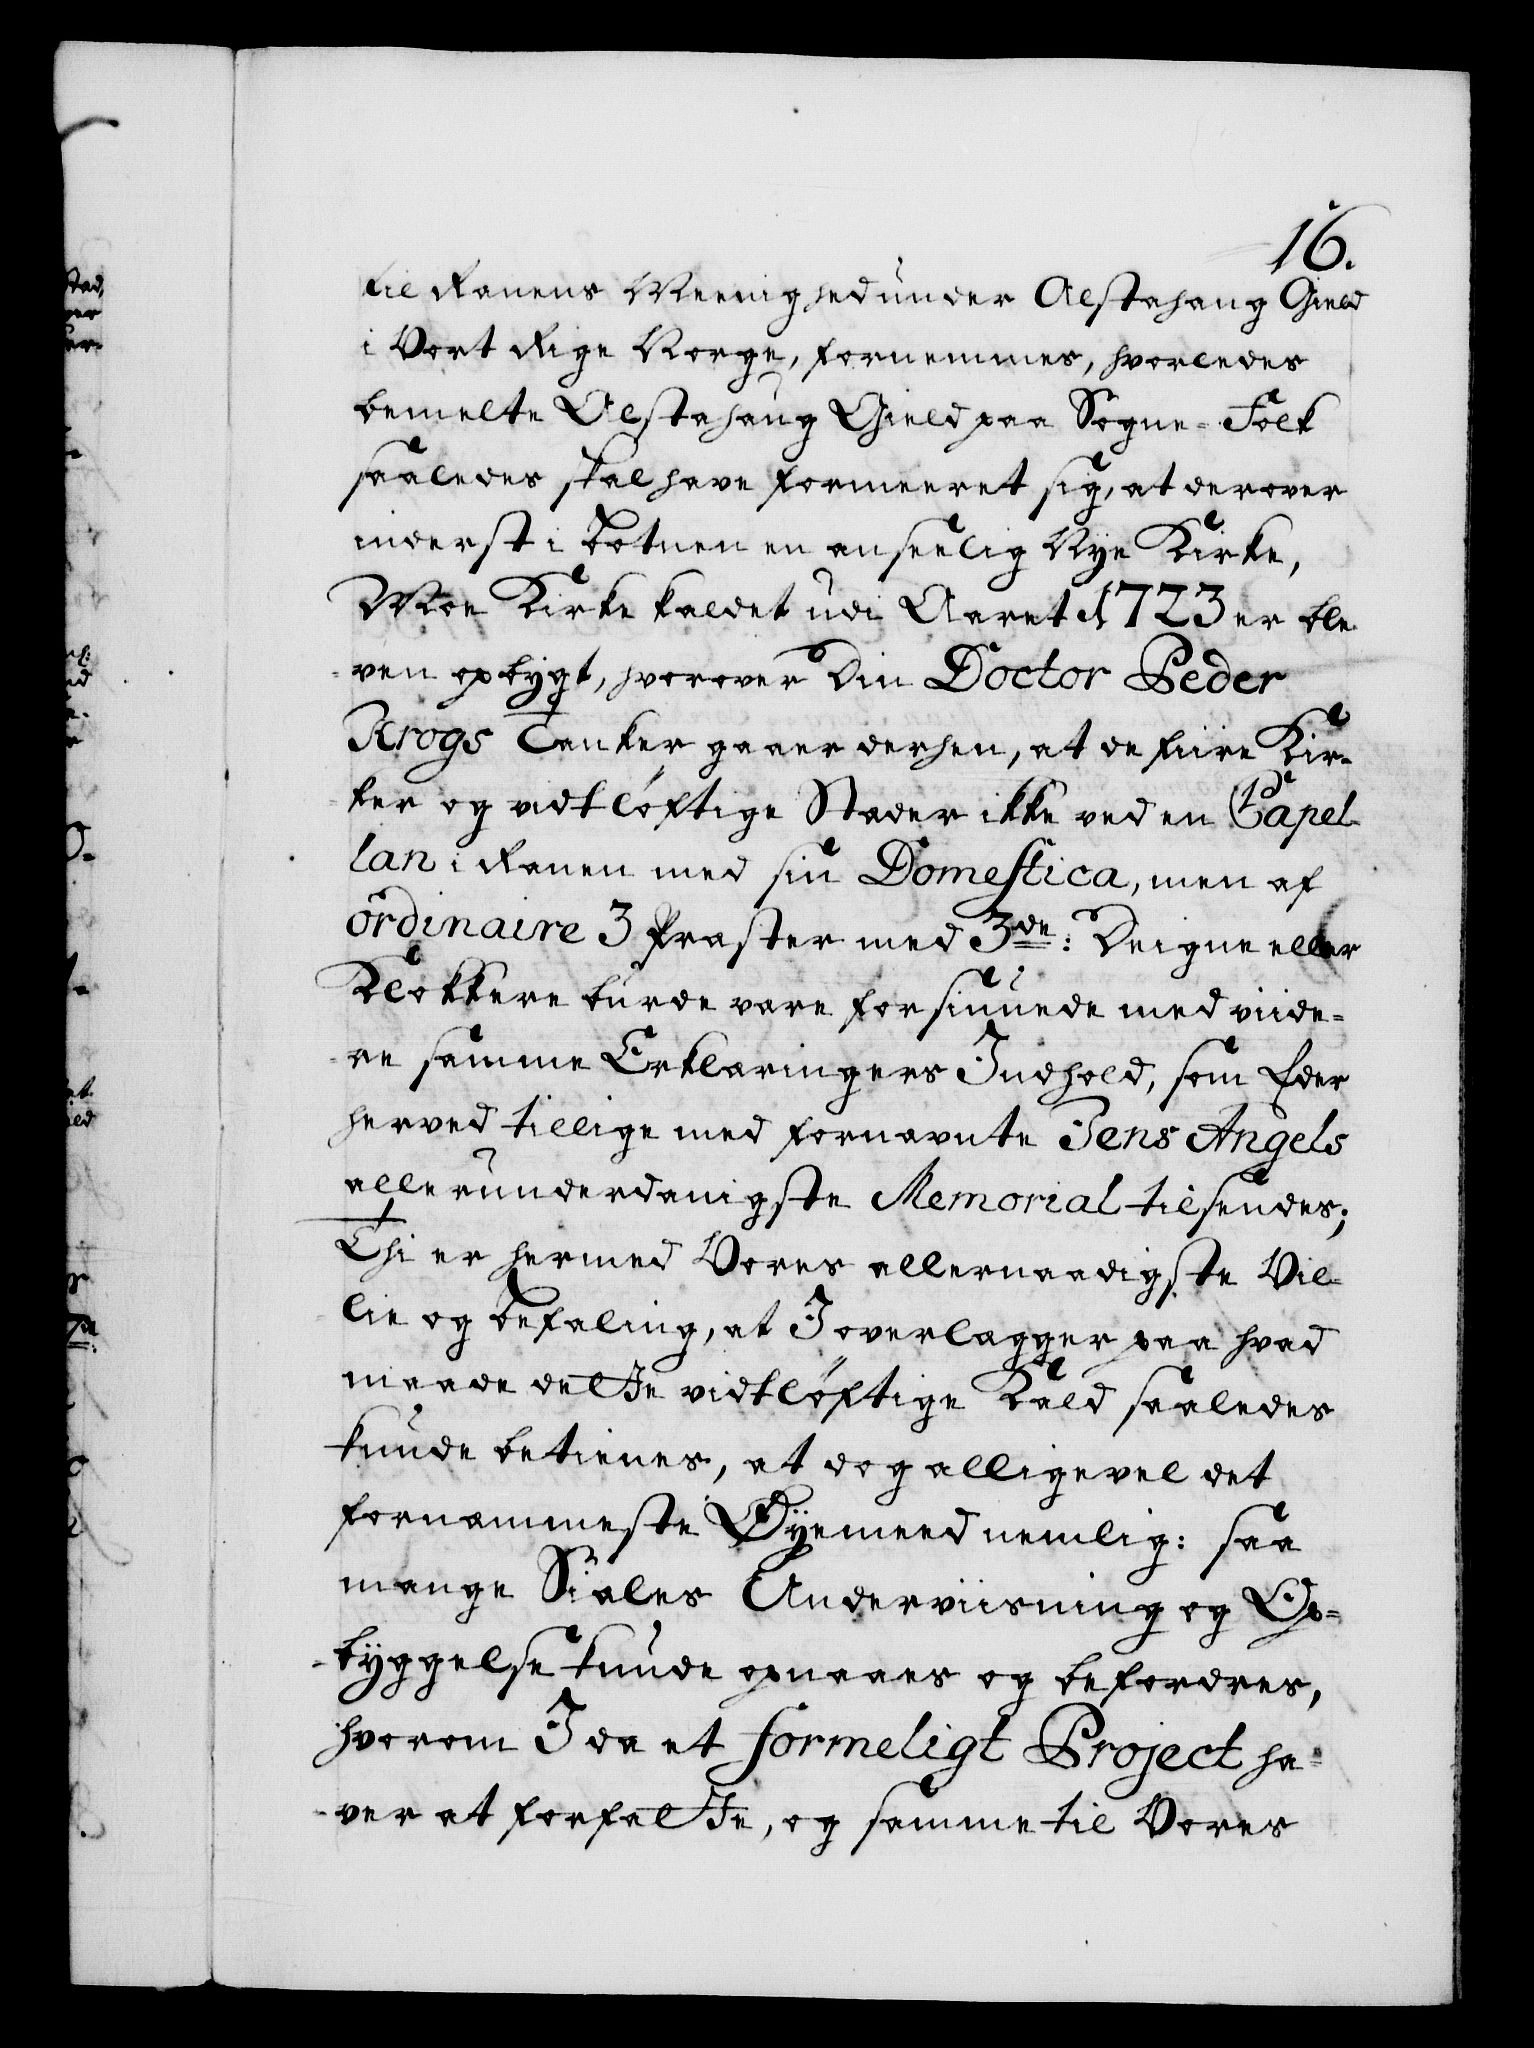 16.
til Ranens Meenighed under Alstahaug Gield
i Vort Rige Norge, fornemmes, hvorledes
bemelte Alstahaug Gield paa Sogne-Folk
saaledes skal have formeeret sig, at derover
inderst i Botnen en anseelig Nye Kirke,
Moe Kirke kaldet udi Aaret 1723 er ble
-ven opbygt, hvorover Din Doctor Peder
Krogs Tanker gaaer derhen, at de fiire Kir-
-ker og vidtløftige Stæder ikke ved en Capel-
lan i Ranen med sin Domestica, men af
ordinaire 3 Præster med 3de: Deigne eller
Klokkere burde være forsiunede med viide-
-re samme Erklæringers Indhold, som Eder
herved tillige med fornævnte Jens Angels
allerunderdanigste Memorial tilsendes;
Thi er hermed Vores allernaadigste Vil-
lie og Befaling, at I overlægger paa hvad
maade dette vidtløftige Kald saaledes
kunde betienes, at dog alligevel det
fornæmmeste Øyemeed nemlig: saa
mange Siæles Underviisning og Op-
-byggelse kunde opnaaes og befordres,
hvorom I da et formeligt Project ha-
-ver at forfatte, og samme til Vores